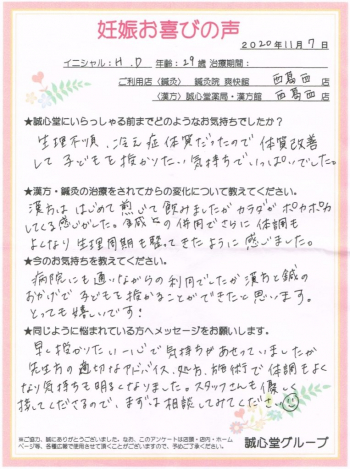 妊娠お喜びの声
2020年11月7日
イニシャル:H.D 年齢:29歳 治療期間:
ご利用店〈鍼灸〉 鍼灸院 爽快館 西葛西 店
〈漢方〉誠心堂薬局・漢方館 西葛西 店
★誠心堂にいらっしゃる前までどのようなお気持ちでしたか?
生理不順、冷え症体質だったので体質改善
して子どもを授かりたい気持ちでいっぱいでした。
★漢方・鍼灸の治療をされてからの変化について教えてください。
漢方ははじめて煎じて飲みましたがカラダがポカポカ
してくる感じがした。鍼灸との併用でさらに体調も
よくなり生理周期も整ってきたように感じました。
★今のお気持ちを教えてください。
病院にも通いながらの利用でしたが漢方と鍼の
おかげで子どもを授かることができたと思います。
とっても嬉しいです!
★同じように悩まれている方へメッセージをお願いします。
早く授かりたい一心で気持ちがあせっていましたが
先生方の適切なアドバイス、処方、施術で体調もよく
なり気持ちも明るくなりました。スタッフさんも優しく
接してくださるので、まずは相談してみてください
※ご協力、誠にありがとうございました。なお、このアンケートは店頭・店内・ホーム
ページ等、各種広告で使用させて頂くことがございますので、予めご了承ください。
誠心堂グループ